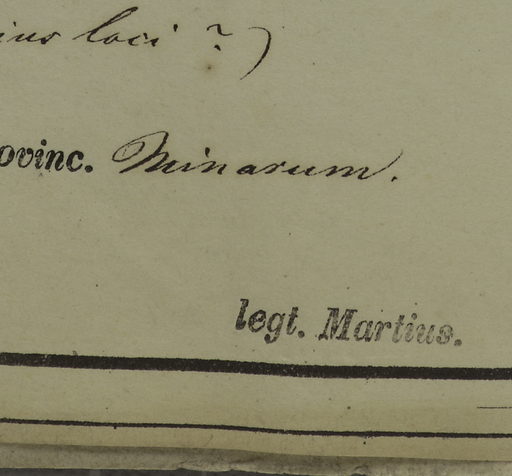 loci ?)
ovinc. Minarum.
legt. Martius.